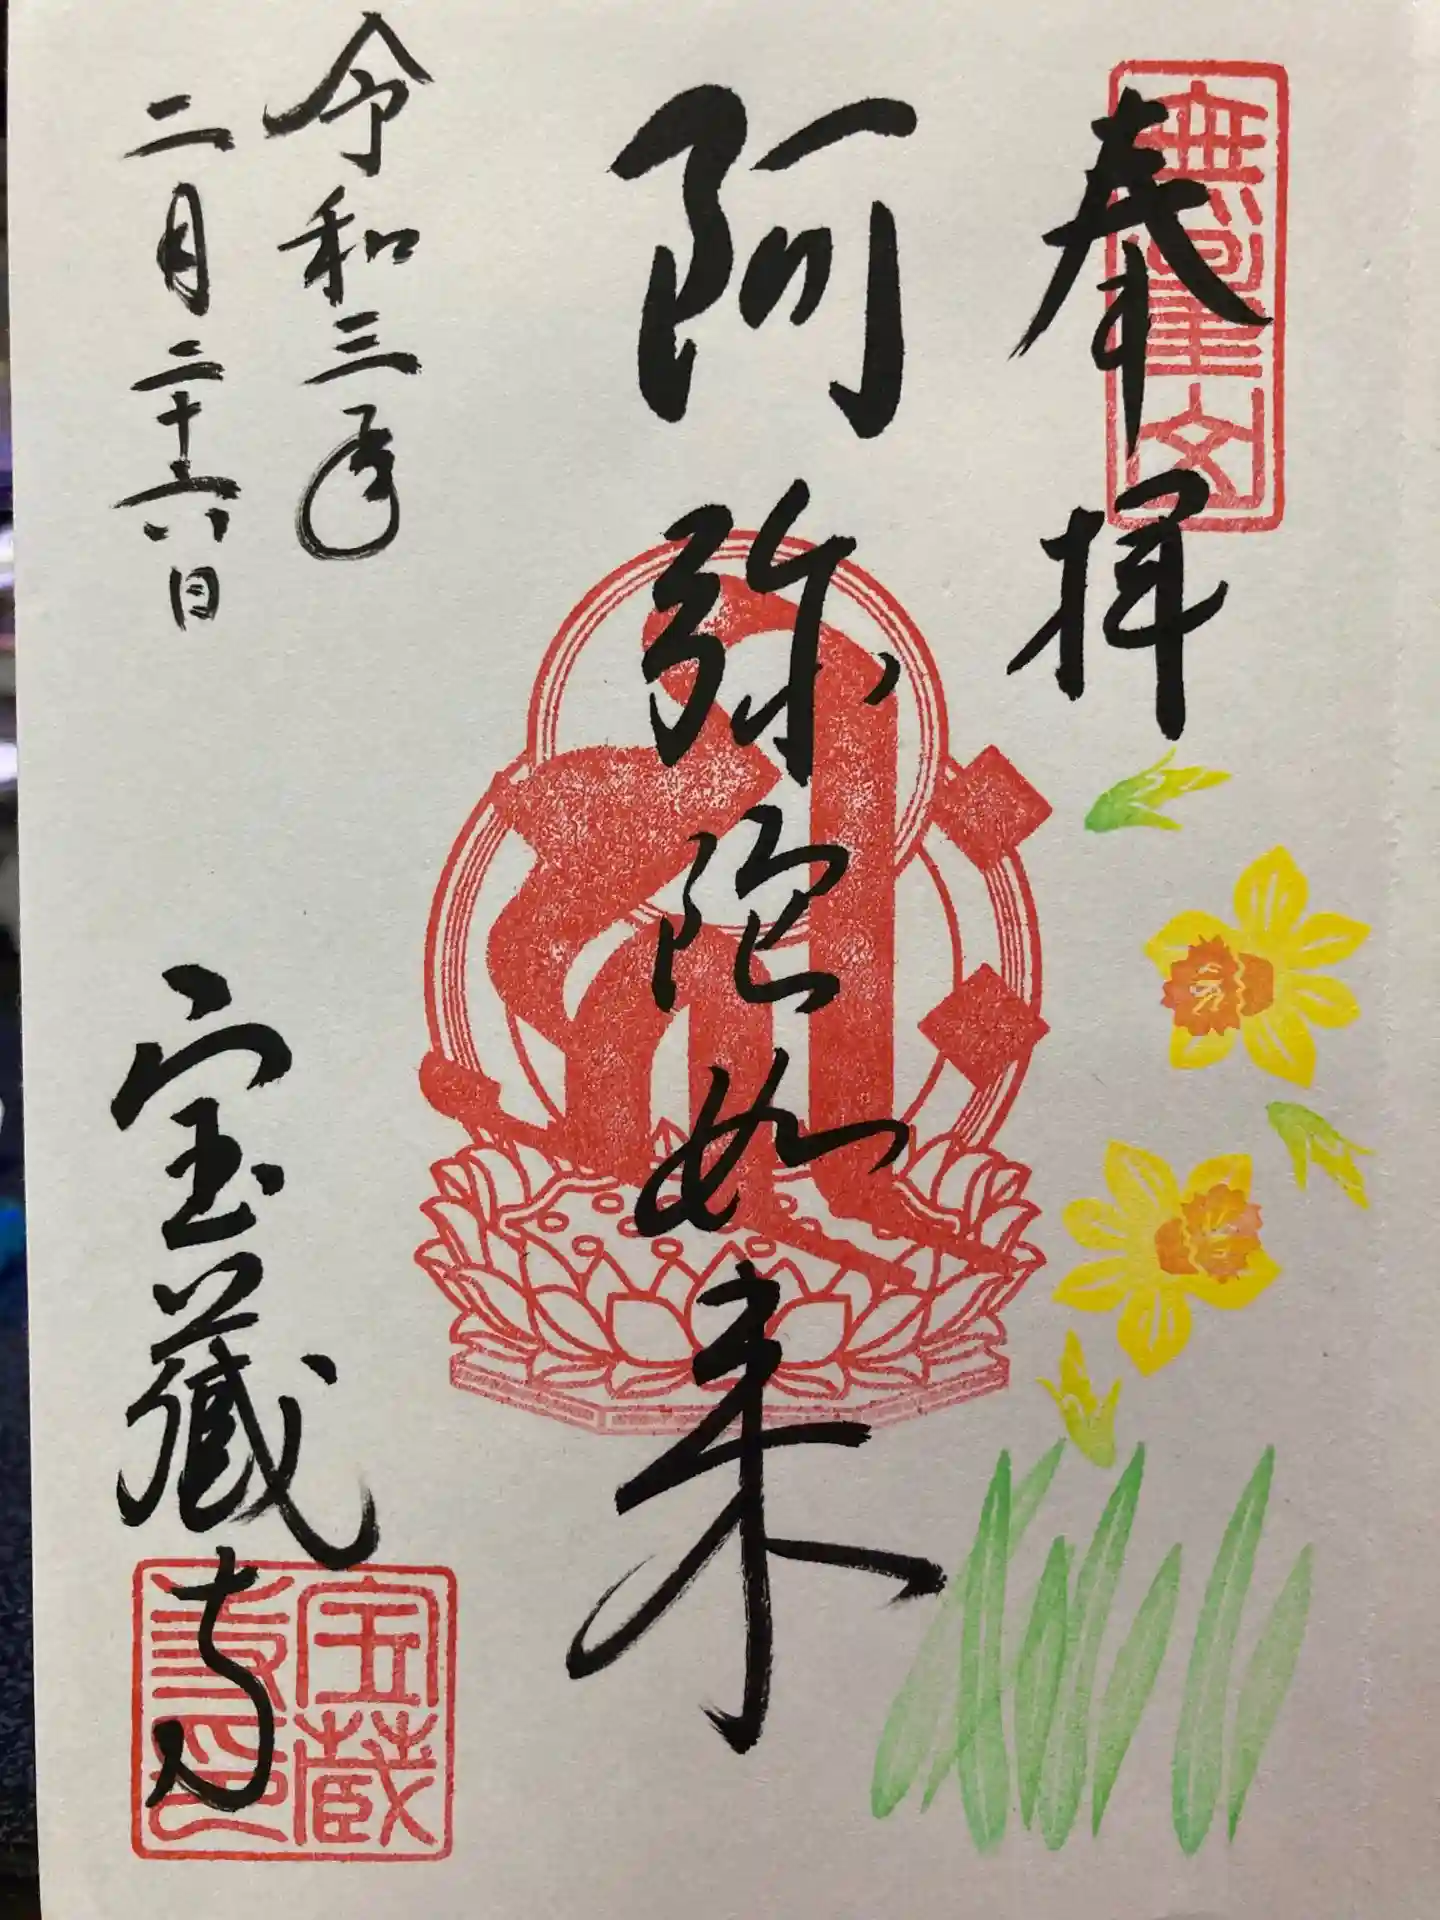 奉拝
阿弥陀如来
令和三年
二月二十六日
宝蔵寺
宝蔵
寺印